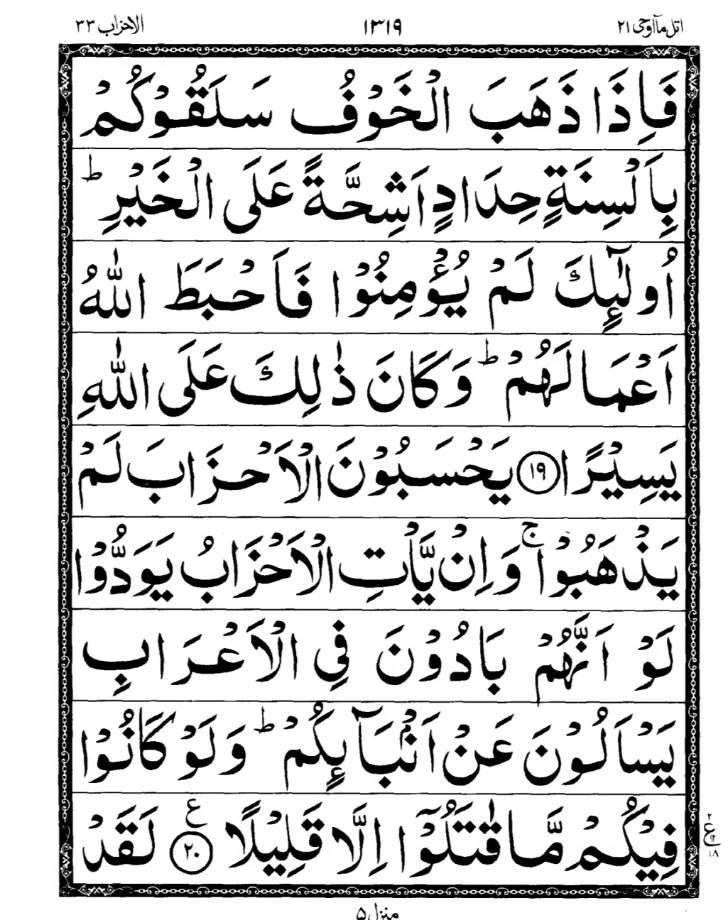 اتل مآ اوحی ۲۱ ۱۳۱۹ الاحزاب ۳۳
فَاِذَا ذَهَبَ الْخَوْفُ سَلَقُوْكُمْ
بِاَلْسِنَةٍ حِدَادٍ اَشِحَّةً عَلَى الْخَيْرِ ؕ
اُولٰٓئِكَ لَمْ يُؤْمِنُوْا فَاَحْبَطَ اللّٰهُ
اَعْمَالَهُمْ ؕ وَكَانَ ذٰلِكَ عَلَى اللّٰهِ
يَسِيْرًا ۱۹ يَحْسَبُوْنَ الْاَحْزَابَ لَمْ
يَذْهَبُوْا ۚ وَاِنْ يَّاْتِ الْاَحْزَابُ يَوَدُّوْا
لَوْ اَنَّهُمْ بَادُوْنَ فِى الْاَعْرَابِ
يَسْاَلُوْنَ عَنْ اَنْۢبَآئِكُمْ ؕ وَلَوْ كَانُوْا
فِيْكُمْ مَّا قٰتَلُوْٓا اِلَّا قَلِيْلًا ۲۰ ع لَقَدْ
۲
ع
۱۲
۱۸
منزل ۵